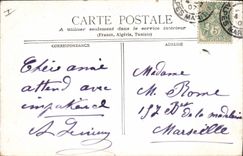 CARTE POSTALE
A utiliser seulement dans le service intérieur
(France, Algérie, Tunisie)
CORRESPONDANCE
ADRESSE
Chère amie
attend avec
impatience
Madame
M. Rome
157 de la madeleine
Marseille